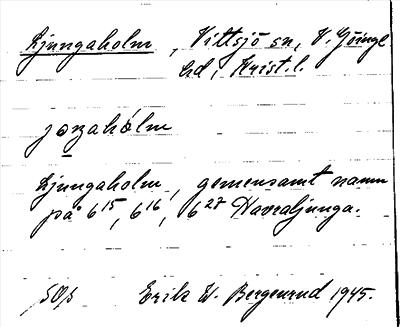 Ljungaholm, Vittsjö sn, V. Göinge
hd, Krist. l.
jɔŋahɔlm
Ljungaholm, gemensamt namn
på 6¹⁵, 6¹⁶, 6²⁷ Havraljunga.
Erik W. Bergenrud 1945.